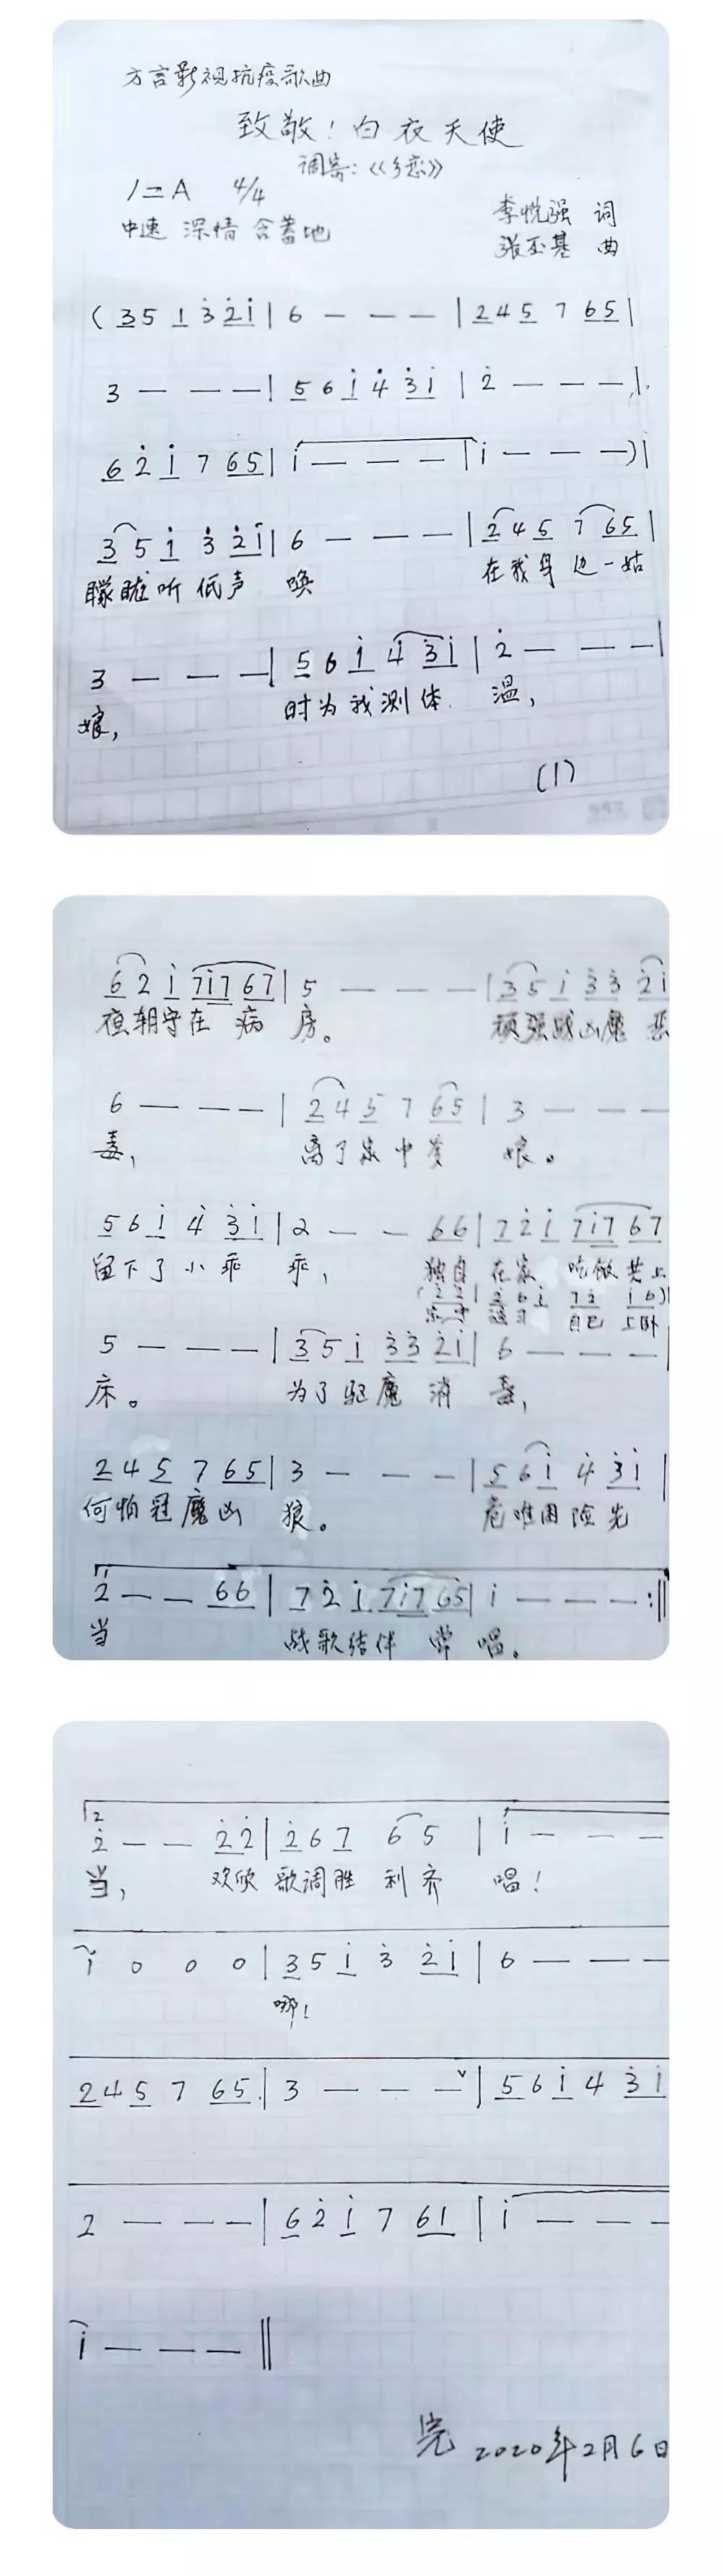 方言影视抗疫歌曲
致敬！白衣天使
调寄：《乡恋》
1=A 4/4
李悦强 词
中速 深情 含蓄地
张丕基 曲
( 3 5 1 3̇ 2̇ 1̇ | 6 — — — | 2 4 5 7 6 5 |
3 — — — | 5 6 1̇ 4̇ 3̇ 1̇ | 2̇ — — — |
6 2̇ 1̇ 7 6 5 | 1̇ — — — | 1̇ — — — ) |
3 5 1̇ 3̇ 2̇ 1̇ | 6 — — — | 2 4 5 7 6 5 |
朦胧听低声 唤 在我身边一姑
3 — — — | 5 6 1̇ 4̇ 3̇ 1̇ | 2̇ — — — |
娘， 时为我测体 温，
(1)
6 2̇ 1̇ 7 1̇ 7 6 7 | 5 — — — | 3 5 1̇ 3̇ 3̇ 2̇ 1̇
夜朝守在 病 房。 顽强战凶魔 恶
6 — — — | 2 4 5 7 6 5 | 3 — — —
毒， 离了家中 娘。
5 6 1̇ 4̇ 3̇ 1̇ | 2 — — 6 6 | 7 2̇ 1̇ 7 1̇ 7 6 7
留下了小乖 乖， 独自 在家 吃做 上
自己 上卧
5 — — — | 3 5 1̇ 3̇ 3̇ 2̇ 1̇ | 6 — — —
床。 为了驱魔 消 毒，
2 4 5 7 6 5 | 3 — — — | 5 6 1̇ 4̇ 3̇ 1̇ |
何怕冠魔凶 狼。 危难困险先
2̇ — — 6 6 | 7 2̇ 1̇ 7 1̇ 7 6 5 | 1̇ — — — :‖
当 战歌结伴 常 唱。
2
2̇ — — 2̇ 2̇ | 2̇ 6 7 6 5 | 1̇ — — —
当， 欢欣 歌调胜 利 齐 唱！
1̇ 0 0 0 | 3 5 1̇ 3̇ 2̇ 1̇ | 6 — — —
哪！
2 4 5 7 6 5 | 3 — — — ∨ | 5 6 1̇ 4 3̇ 1̇
2 — — — | 6 2̇ 1̇ 7 6 1 | 1̇ — — —
1̇ — — — ‖
完 2020年2月6日